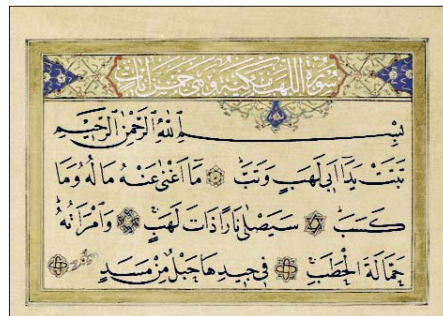 سُورَةُ اللَّهَبِ مَكِّيَّةٌ وَهِيَ خَمْسُ اٰيَاتٍ
بِسْمِ اللّٰهِ الرَّحْمٰنِ الرَّحِيمِ
تَبَّتْ يَدَٓا اَبٖى لَهَبٍ وَتَبَّ مَٓا اَغْنٰى عَنْهُ مَالُهُ وَمَا
كَسَبَ سَيَصْلٰى نَارًا ذَاتَ لَهَبٍ وَامْرَاَتُهُ
حَمَّالَةَ الْحَطَبِ فٖى جٖيدِهَا حَبْلٌ مِنْ مَسَدٍ